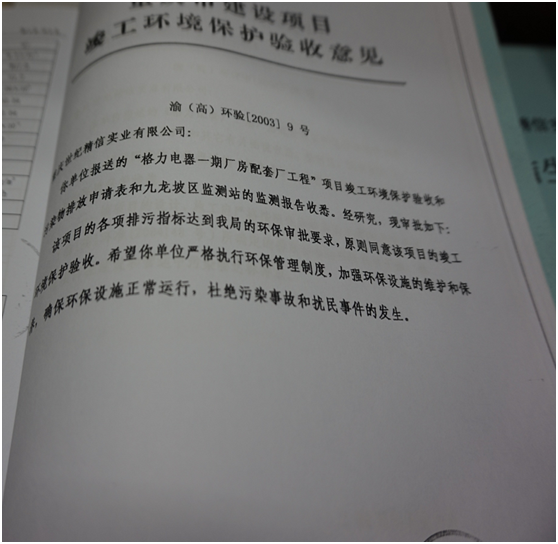 建设项目
竣工环境保护验收意见
渝（高）环验[2003] 9 号
世纪精信实业有限公司：
你单位报送的“格力电器一期厂房配套厂工程”项目竣工环境保护验收和
污染物排放申请表和九龙坡区监测站的监测报告收悉。经研究，现审批如下：
该项目的各项排污指标达到我局的环保审批要求，原则同意该项目的竣工
环境保护验收。希望你单位严格执行环保管理制度，加强环保设施的维护和保
养，确保环保设施正常运行，杜绝污染事故和扰民事件的发生。